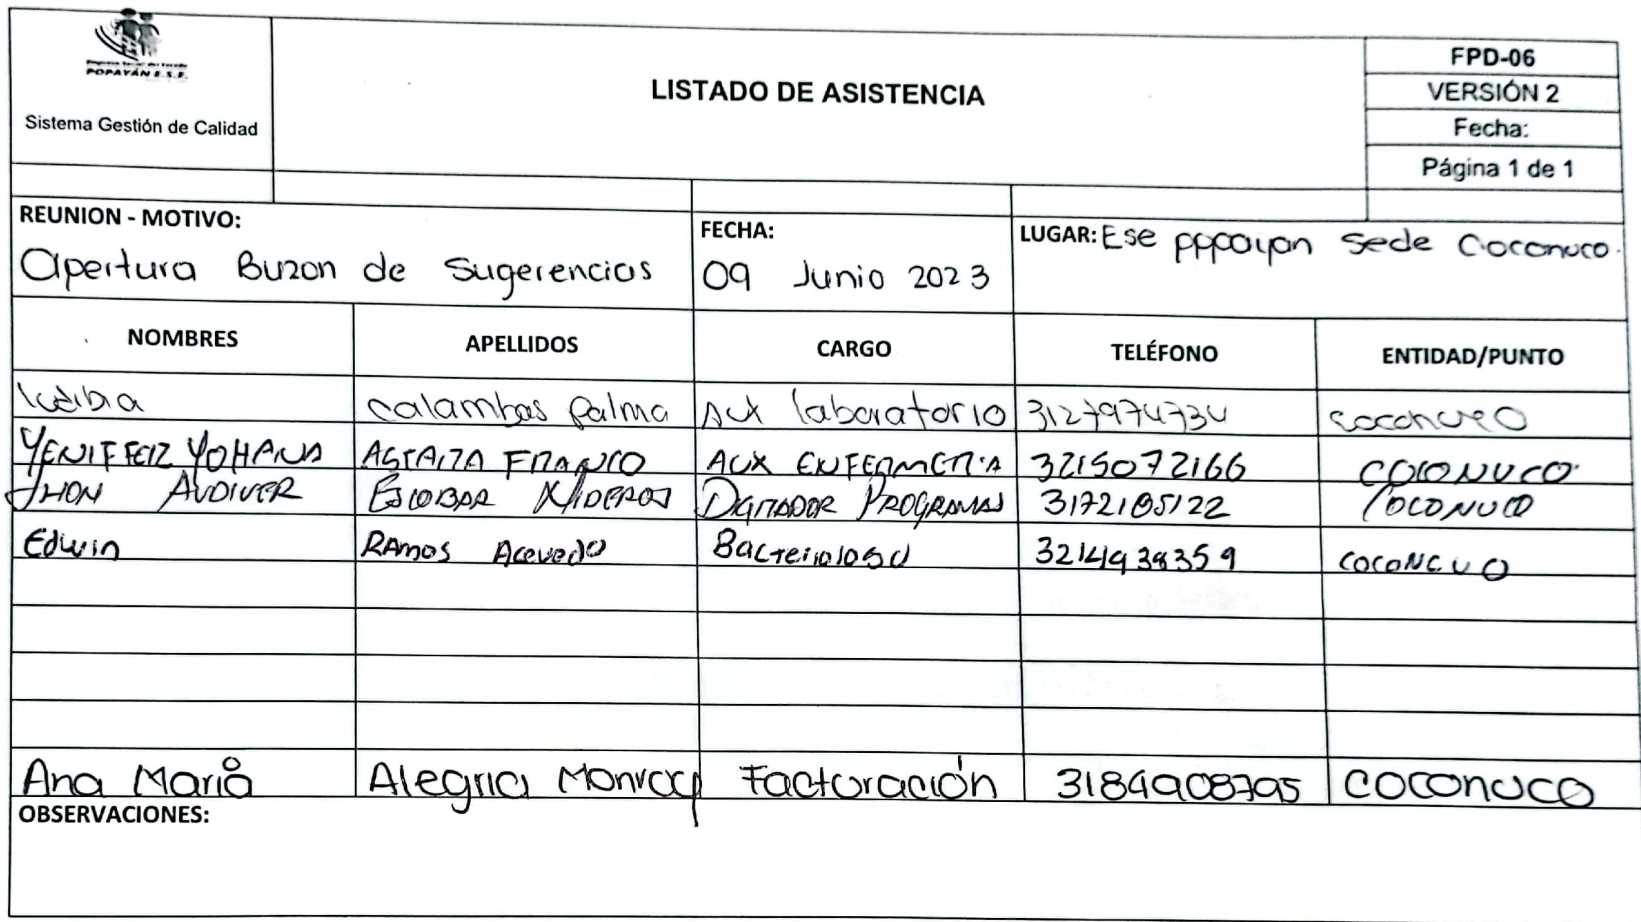 POPAYÁN E.S.E.
Sistema Gestión de Calidad
LISTADO DE ASISTENCIA
FPD-06
VERSIÓN 2
Fecha:
Página 1 de 1
REUNION - MOTIVO:
Apertura Buzon de Sugerencias
FECHA:
09 Junio 2023
LUGAR: Ese pppaypn Sede Coconuco.
NOMBRES APELLIDOS CARGO TELÉFONO ENTIDAD/PUNTO
Calambas Palma Aux laboratorio 3127974734 coconuco
YENIFFER YOHANA ASTAIZA FRANCO AUX ENFERMERIA 3215072166 COCONUCO
JHON AUDIVER ESCOBAR DIGITADOR PROGRAMAS 3172105122 COCONUCO
Edwin RAmos Acevedo Bacteriologo 3214938359 COCONCUO
Ana Maria Alegria Monroy Facturación 3184908795 COCONUCO
OBSERVACIONES: